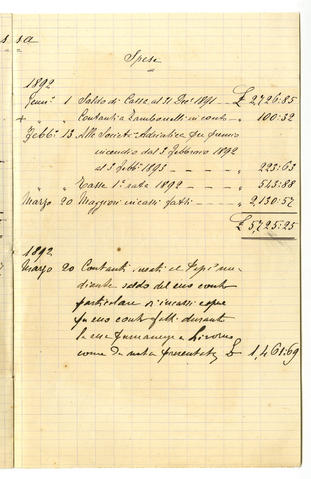 ssa
Spese
1892
Genn° 1 Saldo di Cassa al 31 Dre. 1891 £ 2726:85
+ " Contanti a Zambonelli in conto " 100:32
Febb° 13 Alla Società Adriatica per premio
incendio dal 3 Febbraio 1892
al 3 Febb° 1893 " 223:63
" " Tassa 1ª rata 1892 " 543:88
Marzo 20 Maggiori incassi fatti " 2,130:57
£ 5,725:25
1892
Marzo 20 Contanti
saldo del suo conto
particolare incassi
suo conto fatti durante
la sua permanenza a Livorno
come da nota presentata £ 1,461:69